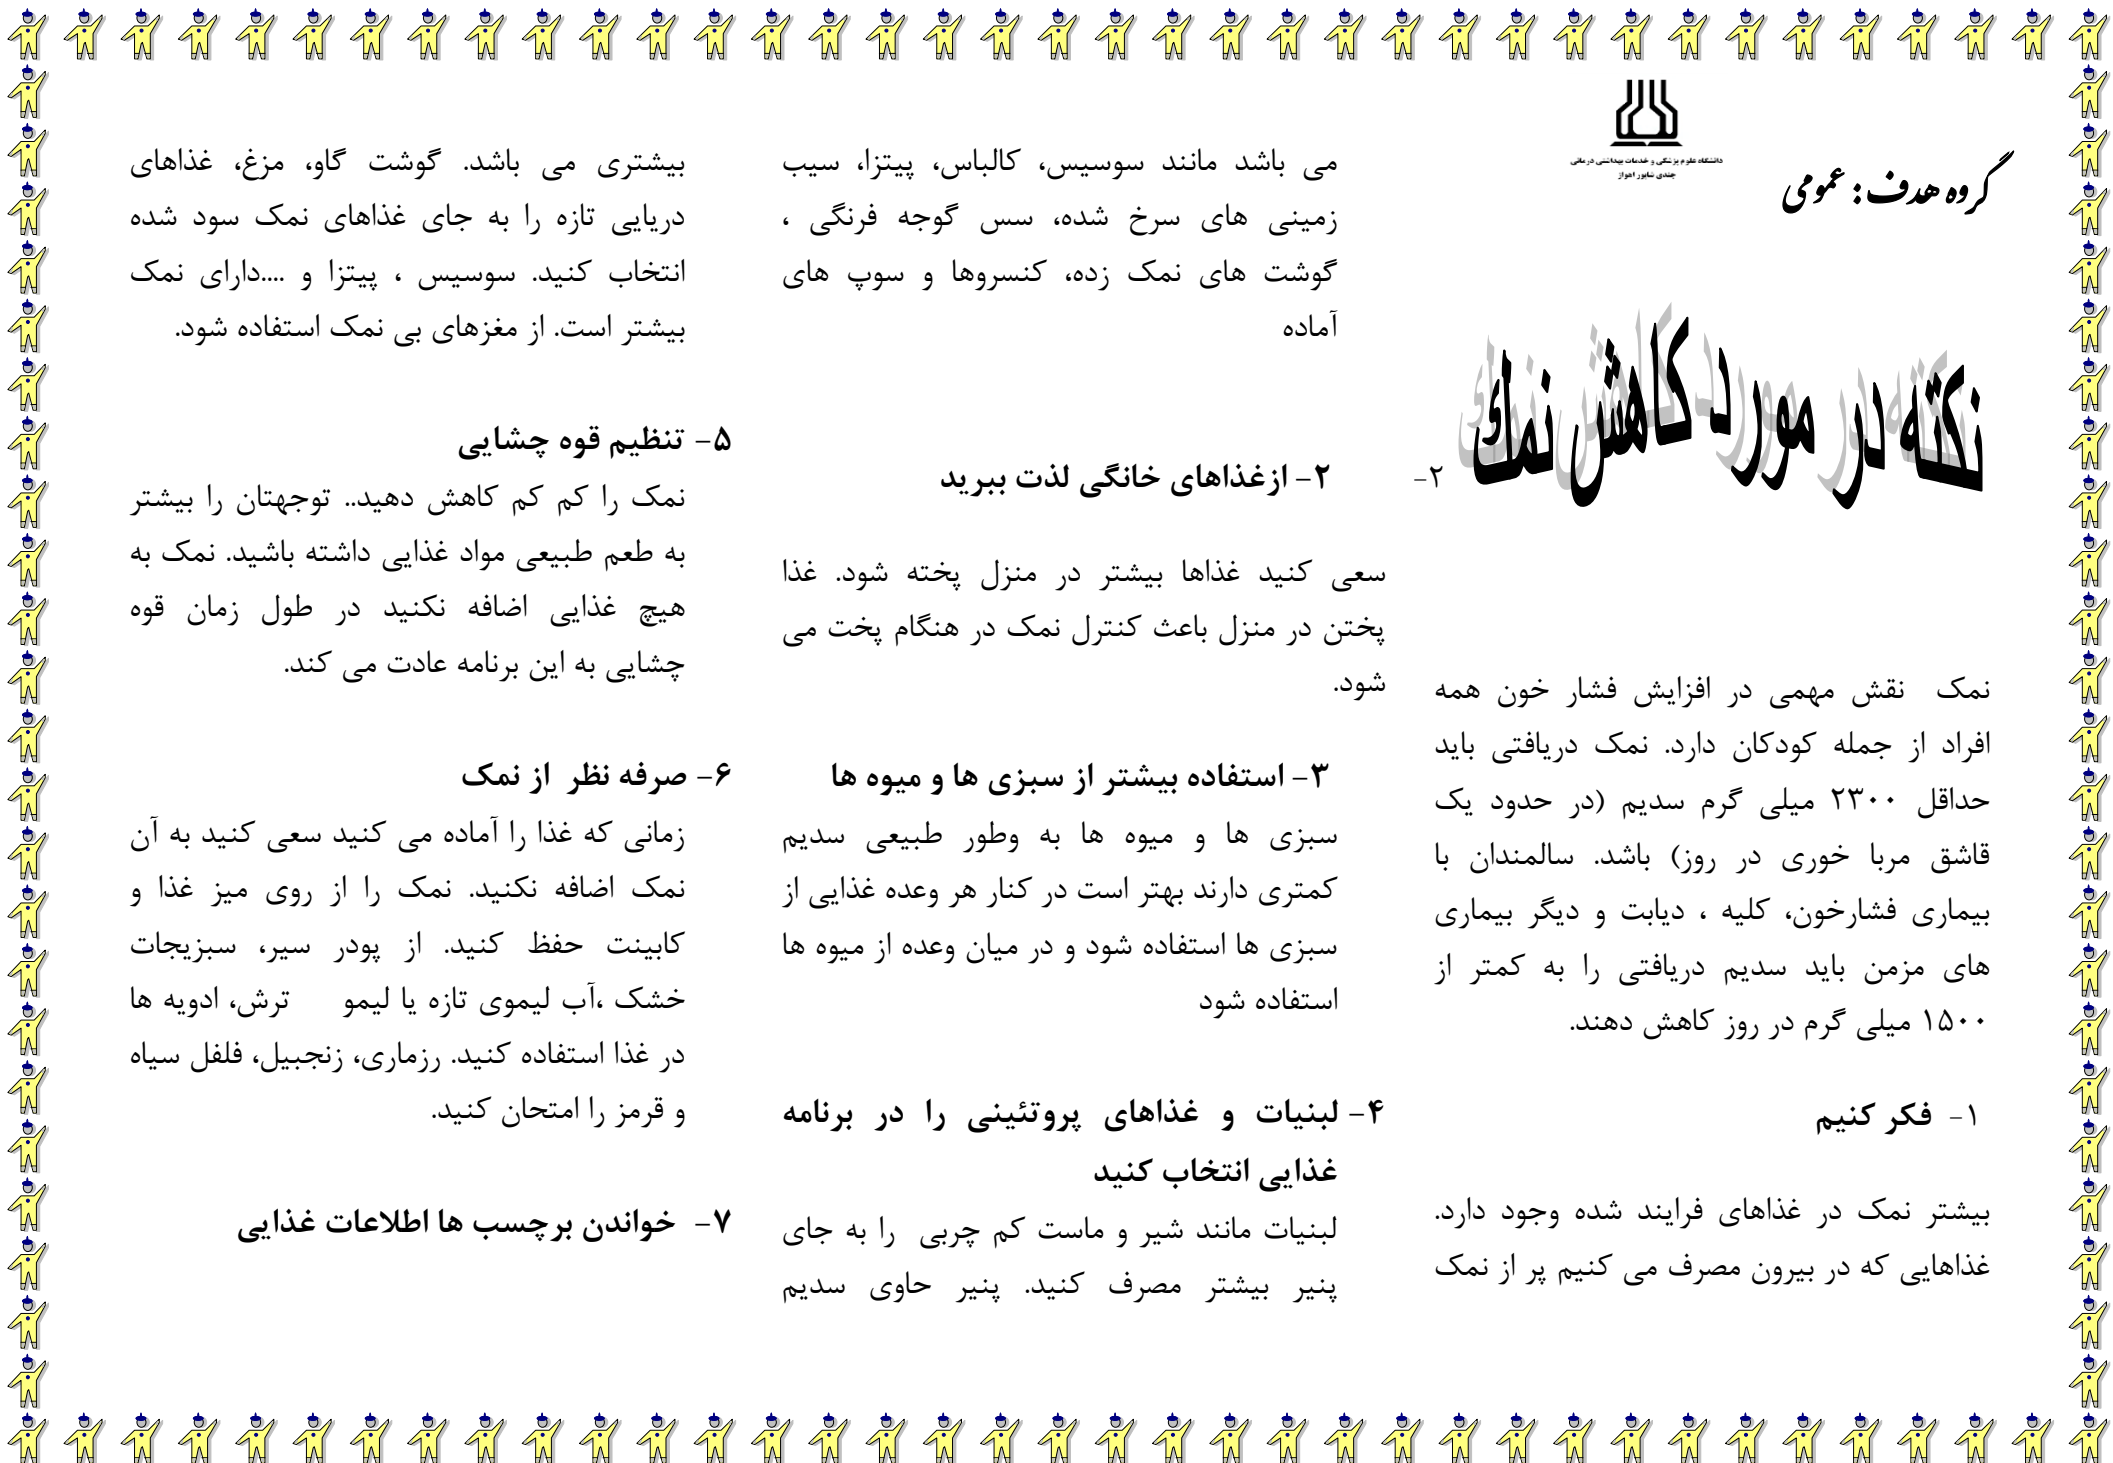 دانشگاه علوم پزشکی و خدمات بهداشتی درمانی
جندی شاپور اهواز
گروه هدف: عمومی
نکته در مورد کاهش نمک
نمک نقش مهمی در افزایش فشار خون همه
افراد از جمله کودکان دارد. نمک دریافتی باید
حداقل ۲۳۰۰ میلی گرم سدیم (در حدود یک
قاشق مربا خوری در روز) باشد. سالمندان با
بیماری فشارخون، کلیه ، دیابت و دیگر بیماری
های مزمن باید سدیم دریافتی را به کمتر از
۱۵۰۰ میلی گرم در روز کاهش دهند.
۱- فکر کنیم
بیشتر نمک در غذاهای فرایند شده وجود دارد.
غذاهایی که در بیرون مصرف می کنیم پر از نمک
می باشد مانند سوسیس، کالباس، پیتزا، سیب
زمینی های سرخ شده، سس گوجه فرنگی ،
گوشت های نمک زده، کنسروها و سوپ های
آماده
۲- ۲- ازغذاهای خانگی لذت ببرید
سعی کنید غذاها بیشتر در منزل پخته شود. غذا
پختن در منزل باعث کنترل نمک در هنگام پخت می
شود.
۳- استفاده بیشتر از سبزی ها و میوه ها
سبزی ها و میوه ها به وطور طبیعی سدیم
کمتری دارند بهتر است در کنار هر وعده غذایی از
سبزی ها استفاده شود و در میان وعده از میوه ها
استفاده شود
۴- لبنیات و غذاهای پروتئینی را در برنامه
غذایی انتخاب کنید
لبنیات مانند شیر و ماست کم چربی را به جای
پنیر بیشتر مصرف کنید. پنیر حاوی سدیم
بیشتری می باشد. گوشت گاو، مزغ، غذاهای
دریایی تازه را به جای غذاهای نمک سود شده
انتخاب کنید. سوسیس ، پیتزا و ....دارای نمک
بیشتر است. از مغزهای بی نمک استفاده شود.
۵- تنظیم قوه چشایی
نمک را کم کم کاهش دهید.. توجهتان را بیشتر
به طعم طبیعی مواد غذایی داشته باشید. نمک به
هیچ غذایی اضافه نکنید در طول زمان قوه
چشایی به این برنامه عادت می کند.
۶- صرفه نظر از نمک
زمانی که غذا را آماده می کنید سعی کنید به آن
نمک اضافه نکنید. نمک را از روی میز غذا و
کابینت حفظ کنید. از پودر سیر، سبزیجات
خشک ،آب لیموی تازه یا لیمو ترش، ادویه ها
در غذا استفاده کنید. رزماری، زنجبیل، فلفل سیاه
و قرمز را امتحان کنید.
۷- خواندن برچسب ها اطلاعات غذایی